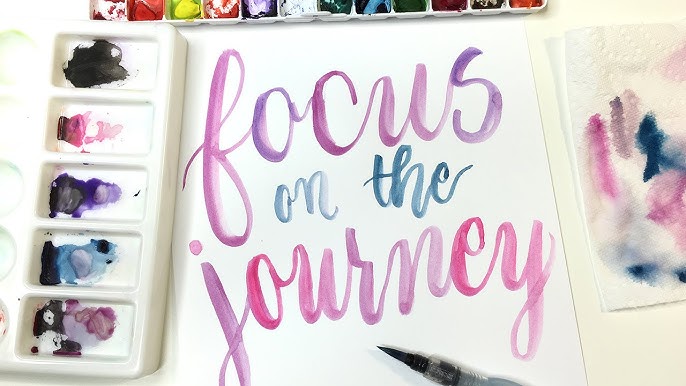 focus
on the
journey